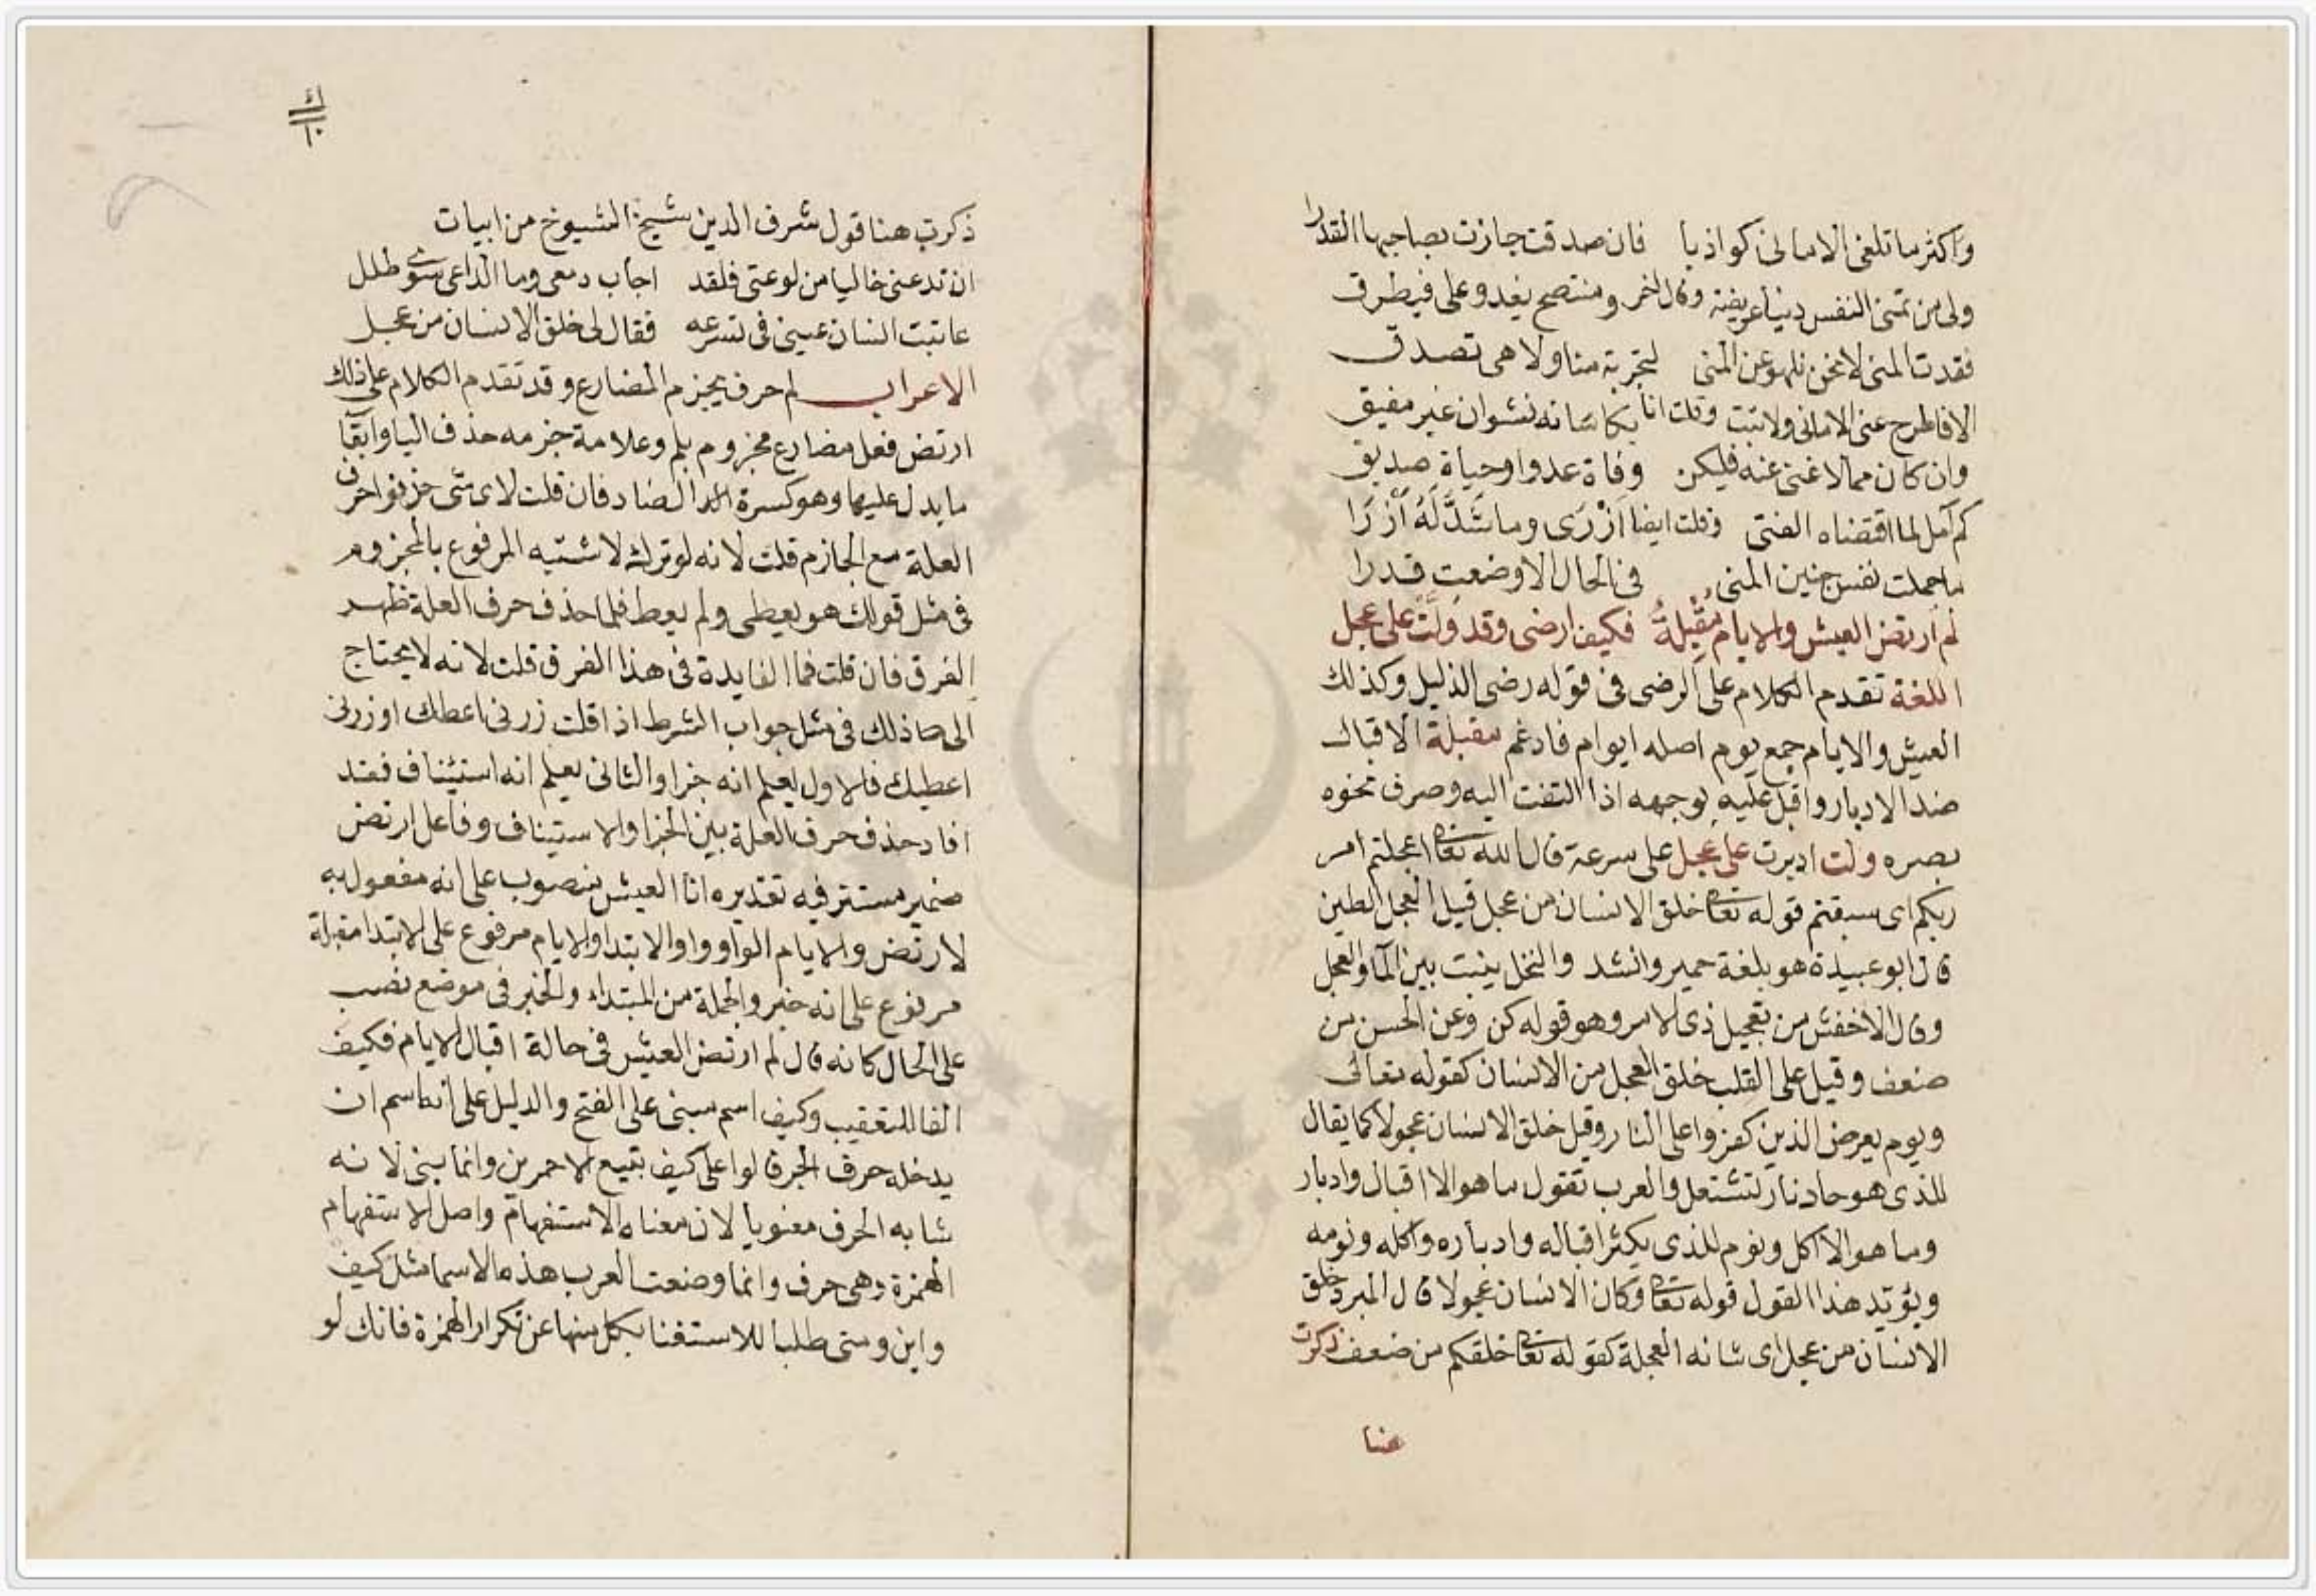 واكثر ما تلغى الامانى كواذبا فان صدقت جازت بصاحبها القدرا
ولى من تمنى النفس دنيا عريضة وقال اخر ومنتصح يغدو على فيطرق
فقدت المنى لا نحن نلهو عن المنى لتجربة منا ولا هى تصدق
الا فاطرح عنى الامانى ولا تبت وقلت انا بكاساته نشوان غير مفيق
وان كان مما لا غنى عنه فليكن وفاة عدوا وحياة صديق
كم آمل لما اقتضاه الفتى وقلت ايضا أَزْرَى وما شَدَّ لَهُ أَزْرَا
ما حملت نفس جنين المنى فى الحال الا وضعت قدرا
لم ارتض العيش والايام مُقْبِلَةٌ فكيف ارضى وقد وَلَّتْ على عجل
اللغة تقدم الكلام على الرضى فى قوله رضى الذليل وكذلك
العيش والايام جمع يوم اصله ايوام فادغم مقبلة الاقبال
ضد الادبار واقبل عليه بوجهه اذا التفت اليه وصرف نحوه
بصره ولت ادبرت على عجل على سرعة قال الله تعا اعجلتم امر
ربكم اى سبقتم قوله تعا خلق الانسان من عجل قيل العجل الطين
قال ابو عبيدة هو بلغة حمير وانشد والنخل ينبت بين المآ والعجل
وقال الاخفش من تعجيل ذى الامر وهو قوله كن وعن الحسن من
ضعف وقيل على القلب خلق العجل من الانسان كقوله تعالى
ويوم يعرض الذين كفروا على النار وقيل خلق الانسان عجولا كما يقال
للذى هو حاد نار تشتعل والعرب تقول ما هو الا اقبال وادبار
وما هو الا اكل ونوم للذى يكثر اقباله وادباره واكله ونومه
ويؤيد هذا القول قوله تعا وكان الانسان عجولا قال المبرد خلق
الانسان من عجل اى شانه العجلة كقوله تعا خلقكم من ضعف ذكرت
هنا
ذكرت هنا قول شرف الدين شيخ الشيوخ من ابيات
ان تدعنى خاليا من لوعتى فلقد اجاب دمعى وما الداعى سوى طلل
عاتبت انسان عينى فى تسرعه فقال لى خلق الانسان من عجل
الاعراب لم حرف يجزم المضارع وقد تقدم الكلام على ذلك
ارتض فعل مضارع مجزوم بلم وعلامة جزمه حذف اليا وابقآ
ما يدل عليها وهو كسرة الضاد فان قلت لاى شى حذفوا حرف
العلة مع الجازم قلت لانه لو ترك لاشتبه المرفوع بالمجزوم
فى مثل قولك هو يعطى ولم يعط فلما حذف حرف العلة ظهر
الفرق فان قلت فما الفايدة فى هذا الفرق قلت لانه لا يحتاج
الى ذلك فى مثل جواب الشرط اذا قلت زرنى اعطك او زرنى
اعطيك فالاول يعلم انه جزا والثانى يعلم انه استيناف فقد
افاد حذف حرف العلة بين الجزا والاستيناف وفاعل ارتض
ضمير مستتر فيه تقديره انا العيش منصوب على انه مفعول به
لارتض والايام الواو واو الابتدا والايام مرفوع على الابتدا مقبلة
مرفوع على انه خبر والجملة من المبتداء والخبر فى موضع نصب
على الحال كانه قال لم ارتض العيش فى حالة اقبال الايام فكيف
الفا للتعقيب وكيف اسم مبنى على الفتح والدليل على انها اسم ان
يدخله حرف الجر قالوا على كيف تبيع الاحمرين وانما بنى لانه
شابه الحرف معنويا لان معناه الاستفهام واصل الاستفهام
الهمزة وهى حرف وانما وضعت العرب هذه الاسما مثل كيف
واين ومتى طلبا للاستغنا بكل منها عن تكرار الهمزة فانك لو